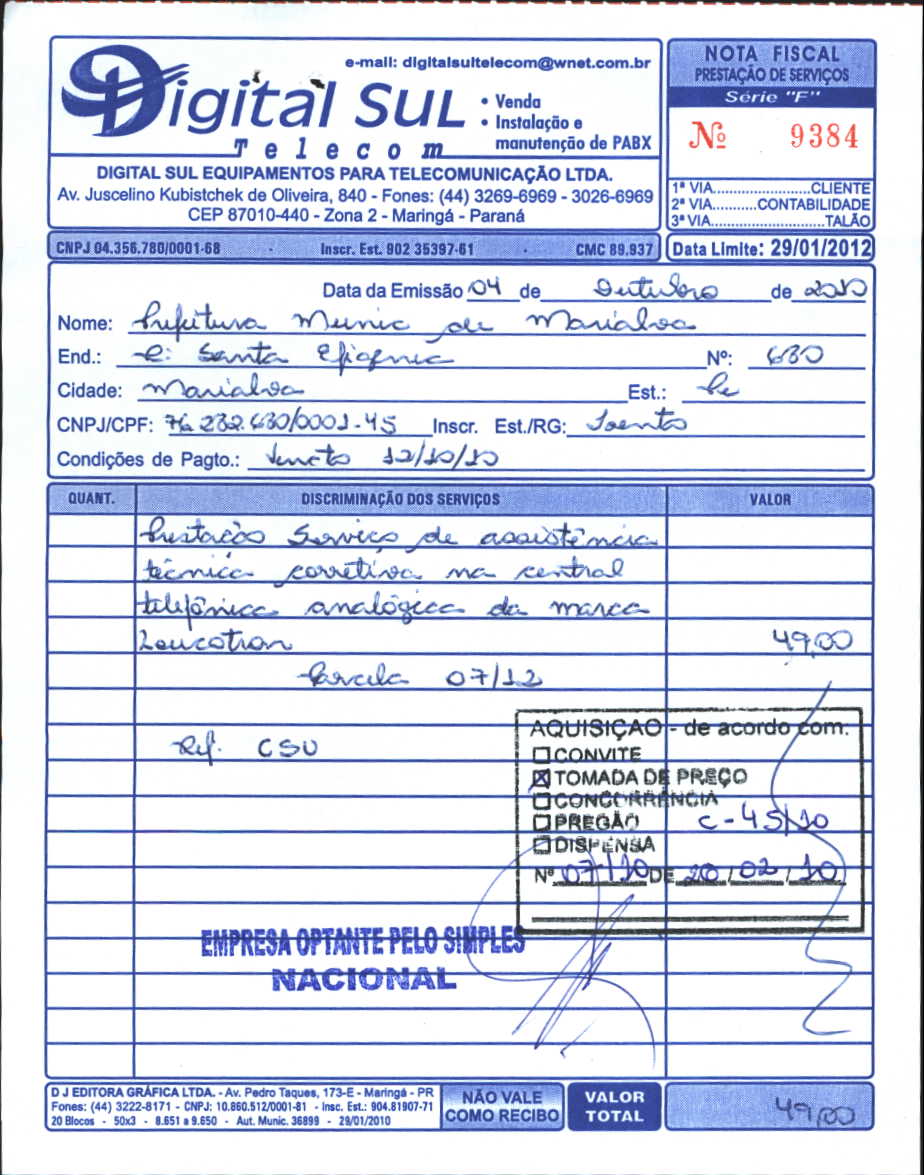 e-mail: digitalsultelecom@wnet.com.br
Digital Sul
Telecom
• Venda
• Instalação e
manutenção de PABX
DIGITAL SUL EQUIPAMENTOS PARA TELECOMUNICAÇÃO LTDA.
Av. Juscelino Kubistchek de Oliveira, 840 - Fones: (44) 3269-6969 - 3026-6969
CEP 87010-440 - Zona 2 - Maringá - Paraná
NOTA FISCAL
PRESTAÇÃO DE SERVIÇOS
Série "F"
Nº 9384
1ª VIA.......................CLIENTE
2ª VIA..........CONTABILIDADE
3ª VIA..........................TALÃO
CNPJ 04.356.780/0001-68 - Inscr. Est. 902 35397-61 - CMC 89.937
Data Limite: 29/01/2012
Data da Emissão 04 de Outubro de 2010
Nome: Prefeitura Munic de Marialva
End.: R: Santa Efigenia Nº: 680
Cidade: Marialva Est.: Pr
CNPJ/CPF: 76.282.680/0001-45 Inscr. Est./RG: Isento
Condições de Pagto.: Vencto 12/10/10
QUANT. DISCRIMINAÇÃO DOS SERVIÇOS VALOR
Prestação Serviço de assistência
técnica corretiva na central
telefônica analógica da marca
Leucotron 49,00
Parcela 07/12
Ref. CSU
AQUISIÇAO - de acordo com:
CONVITE
TOMADA DE PREÇO
CONCORRÊNCIA
PREGÃO C-45/10
DISPENSA
Nº 07/10 DE 20/02/10
EMPRESA OPTANTE PELO SIMPLES
NACIONAL
D J EDITORA GRÁFICA LTDA. - Av. Pedro Taques, 173-E - Maringá - PR
Fones: (44) 3222-8171 - CNPJ: 10.860.512/0001-81 - Insc. Est.: 904.81907-71
20 Blocos - 50x3 - 8.651 a 9.650 - Aut. Munic. 36899 - 29/01/2010
NÃO VALE
COMO RECIBO
VALOR
TOTAL
49,00